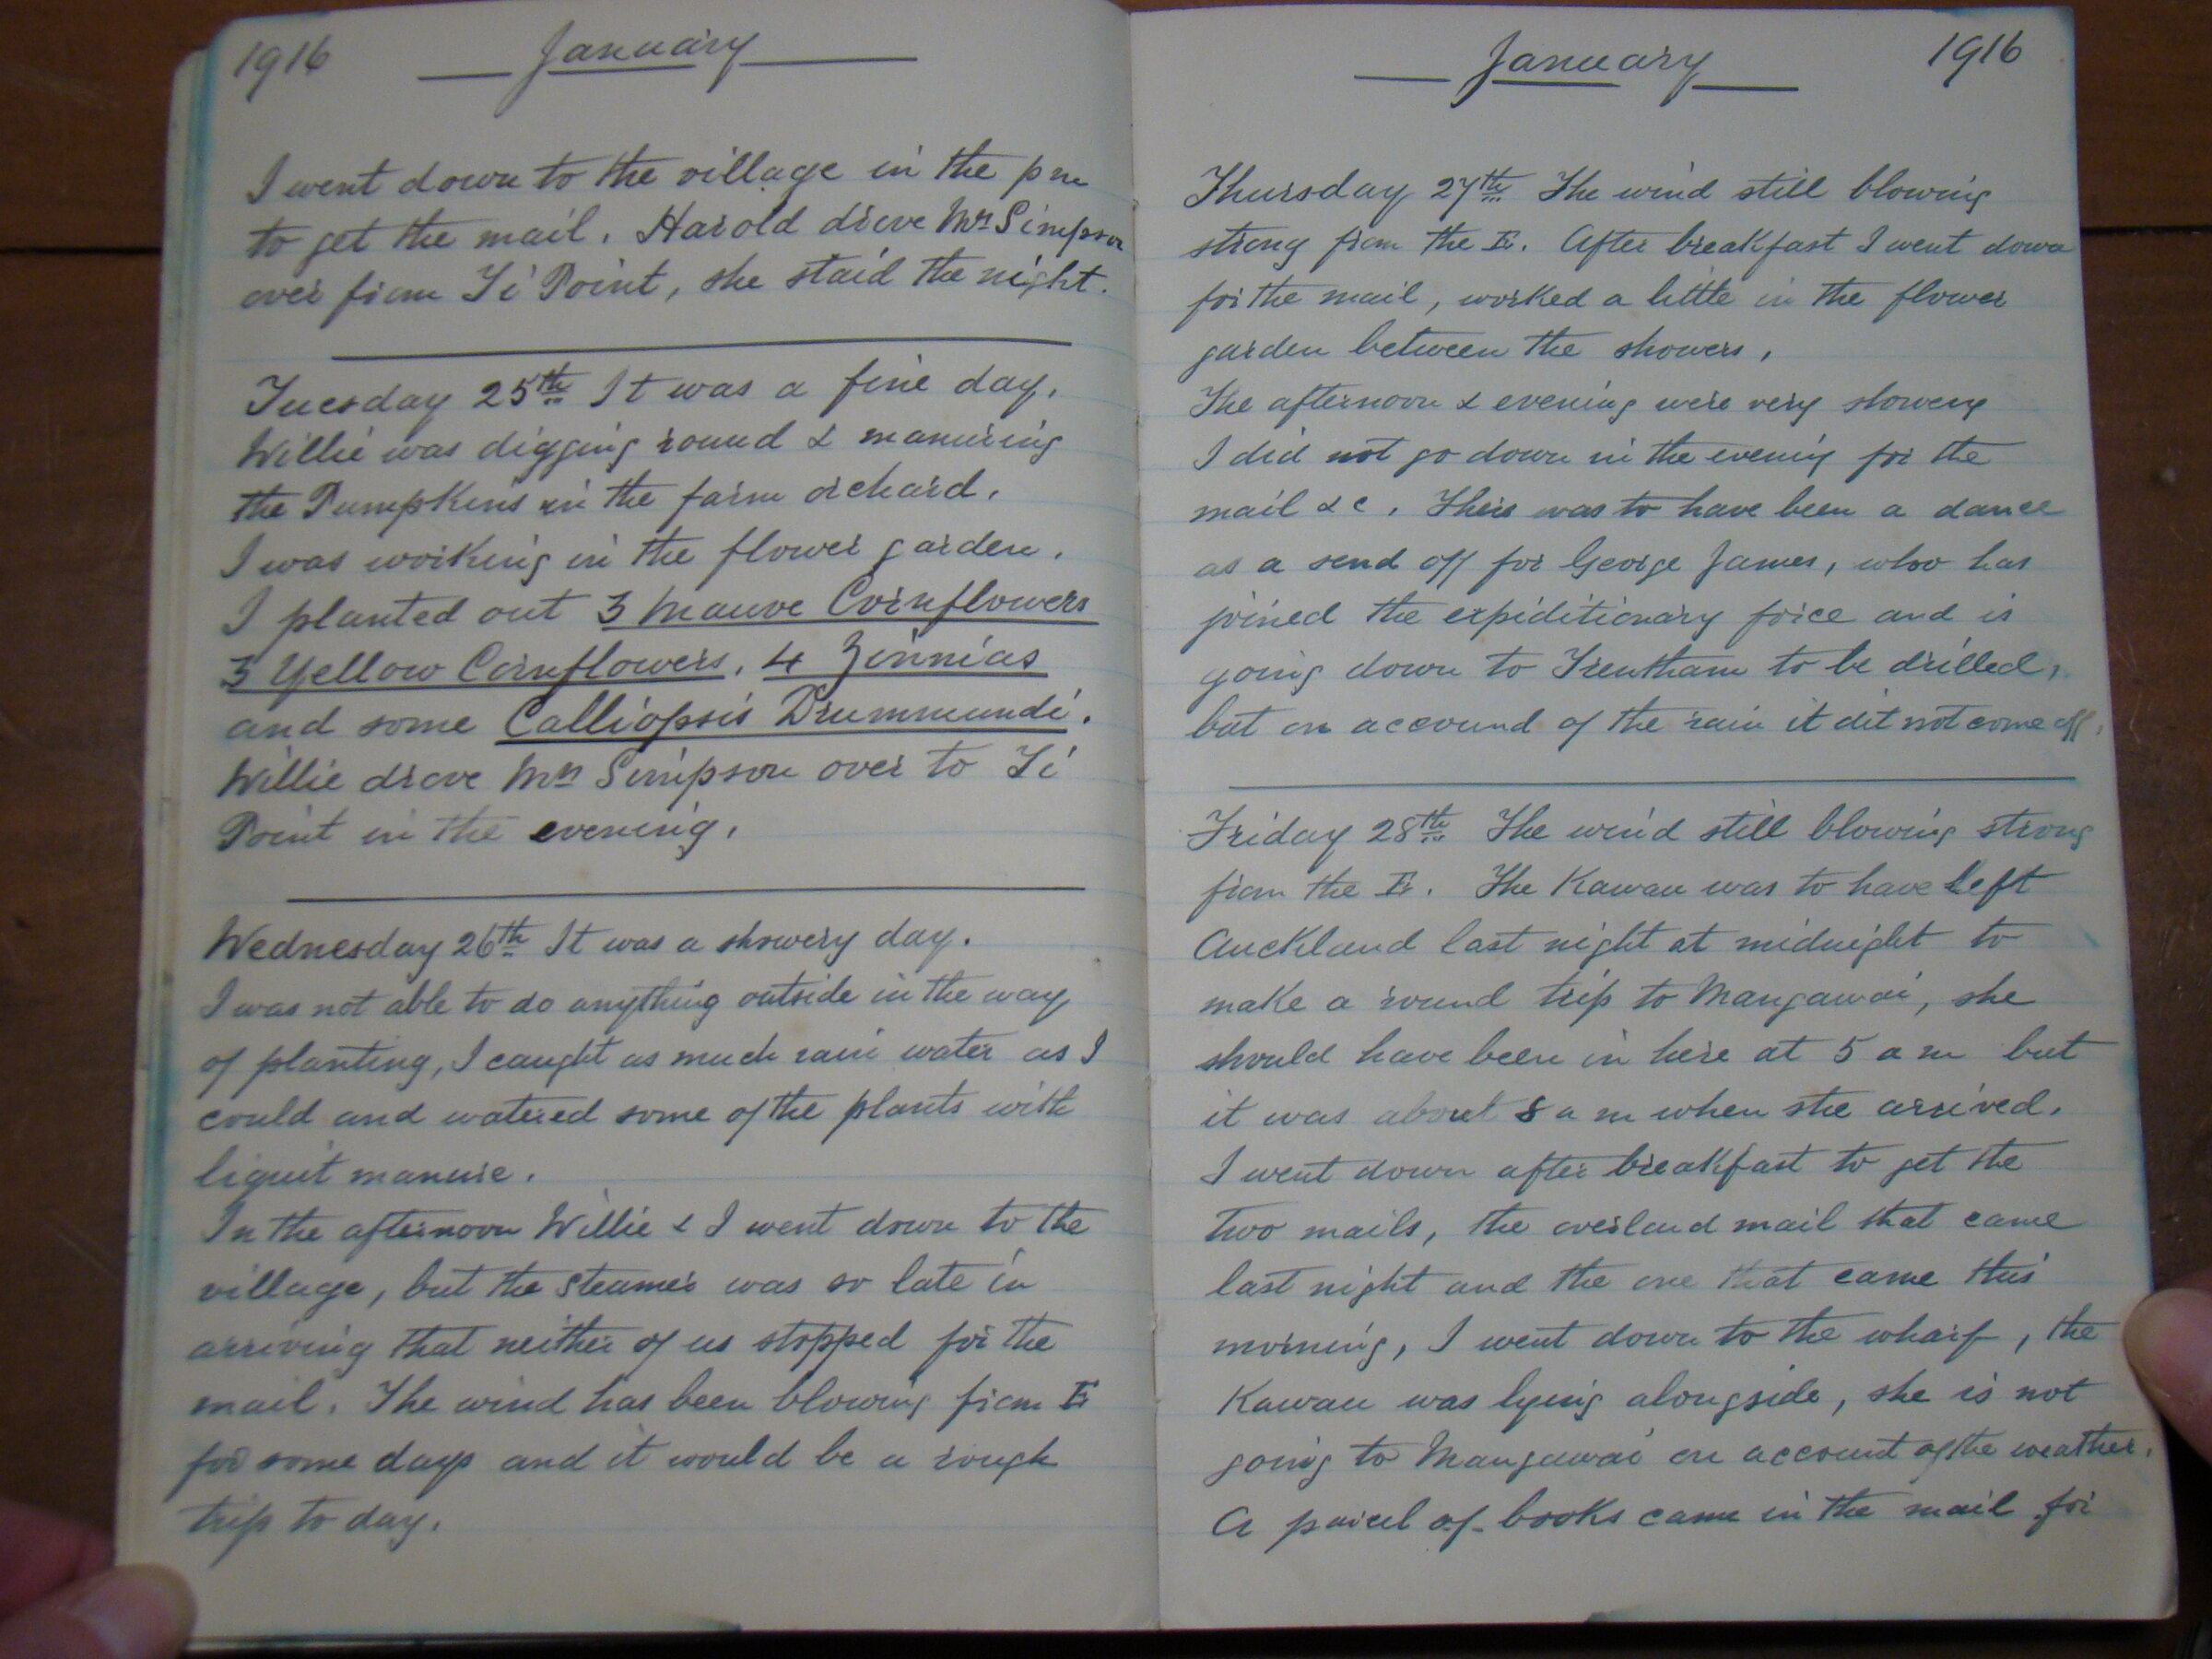 1916 January
I went down to the village in the pm
to get the mail. Harold drove Mrs Simpson
over from Ti Point, she staid the night.
Tuesday 25th It was a fine day.
Willie was digging round & manuring
the Pumpkins in the farm orchard.
I was working in the flower garden.
I planted out 3 Mauve Cornflowers
3 Yellow Cornflowers, 4 Zinnias
and some Calliopsis Drummundi.
Willie drove Mrs Simpson over to Ti
Point in the evening.
Wednesday 26th It was a showery day.
I was not able to do anything outside in the way
of planting, I caught as much rain water as I
could and watered some of the plants with
liquit manure.
In the afternoon Willie & I went down to the
village, but the steamer was so late in
arriving that neither of us stopped for the
mail. The wind has been blowing from E
for some days and it would be a rough
trip to day.
January 1916
Thursday 27th The wind still blowing
strong from the E. After breakfast I went down
for the mail, worked a little in the flower
garden between the showers,
The afternoon & evening were very showery
I did not go down in the evening for the
mail &c. There was to have been a dance
as a send off for George James, who has
joined the expiditionary force and is
going down to Trentham to be drilled,
but on accound of the rain it dit not come off.
Friday 28th The wind still blowing strong
from the E. The Kawau was to have left
Auckland last night at midnight to
make a round trip to Mangawai, she
should have been in here at 5 a m but
it was about 8 a m when she arrived.
I went down after breakfast to get the
two mails, the overland mail that came
last night and the one that came this
morning, I went down to the wharf, the
Kawau was lying alongside, she is not
going to Mangawai on account of the weather.
A parcel of books came in the mail for